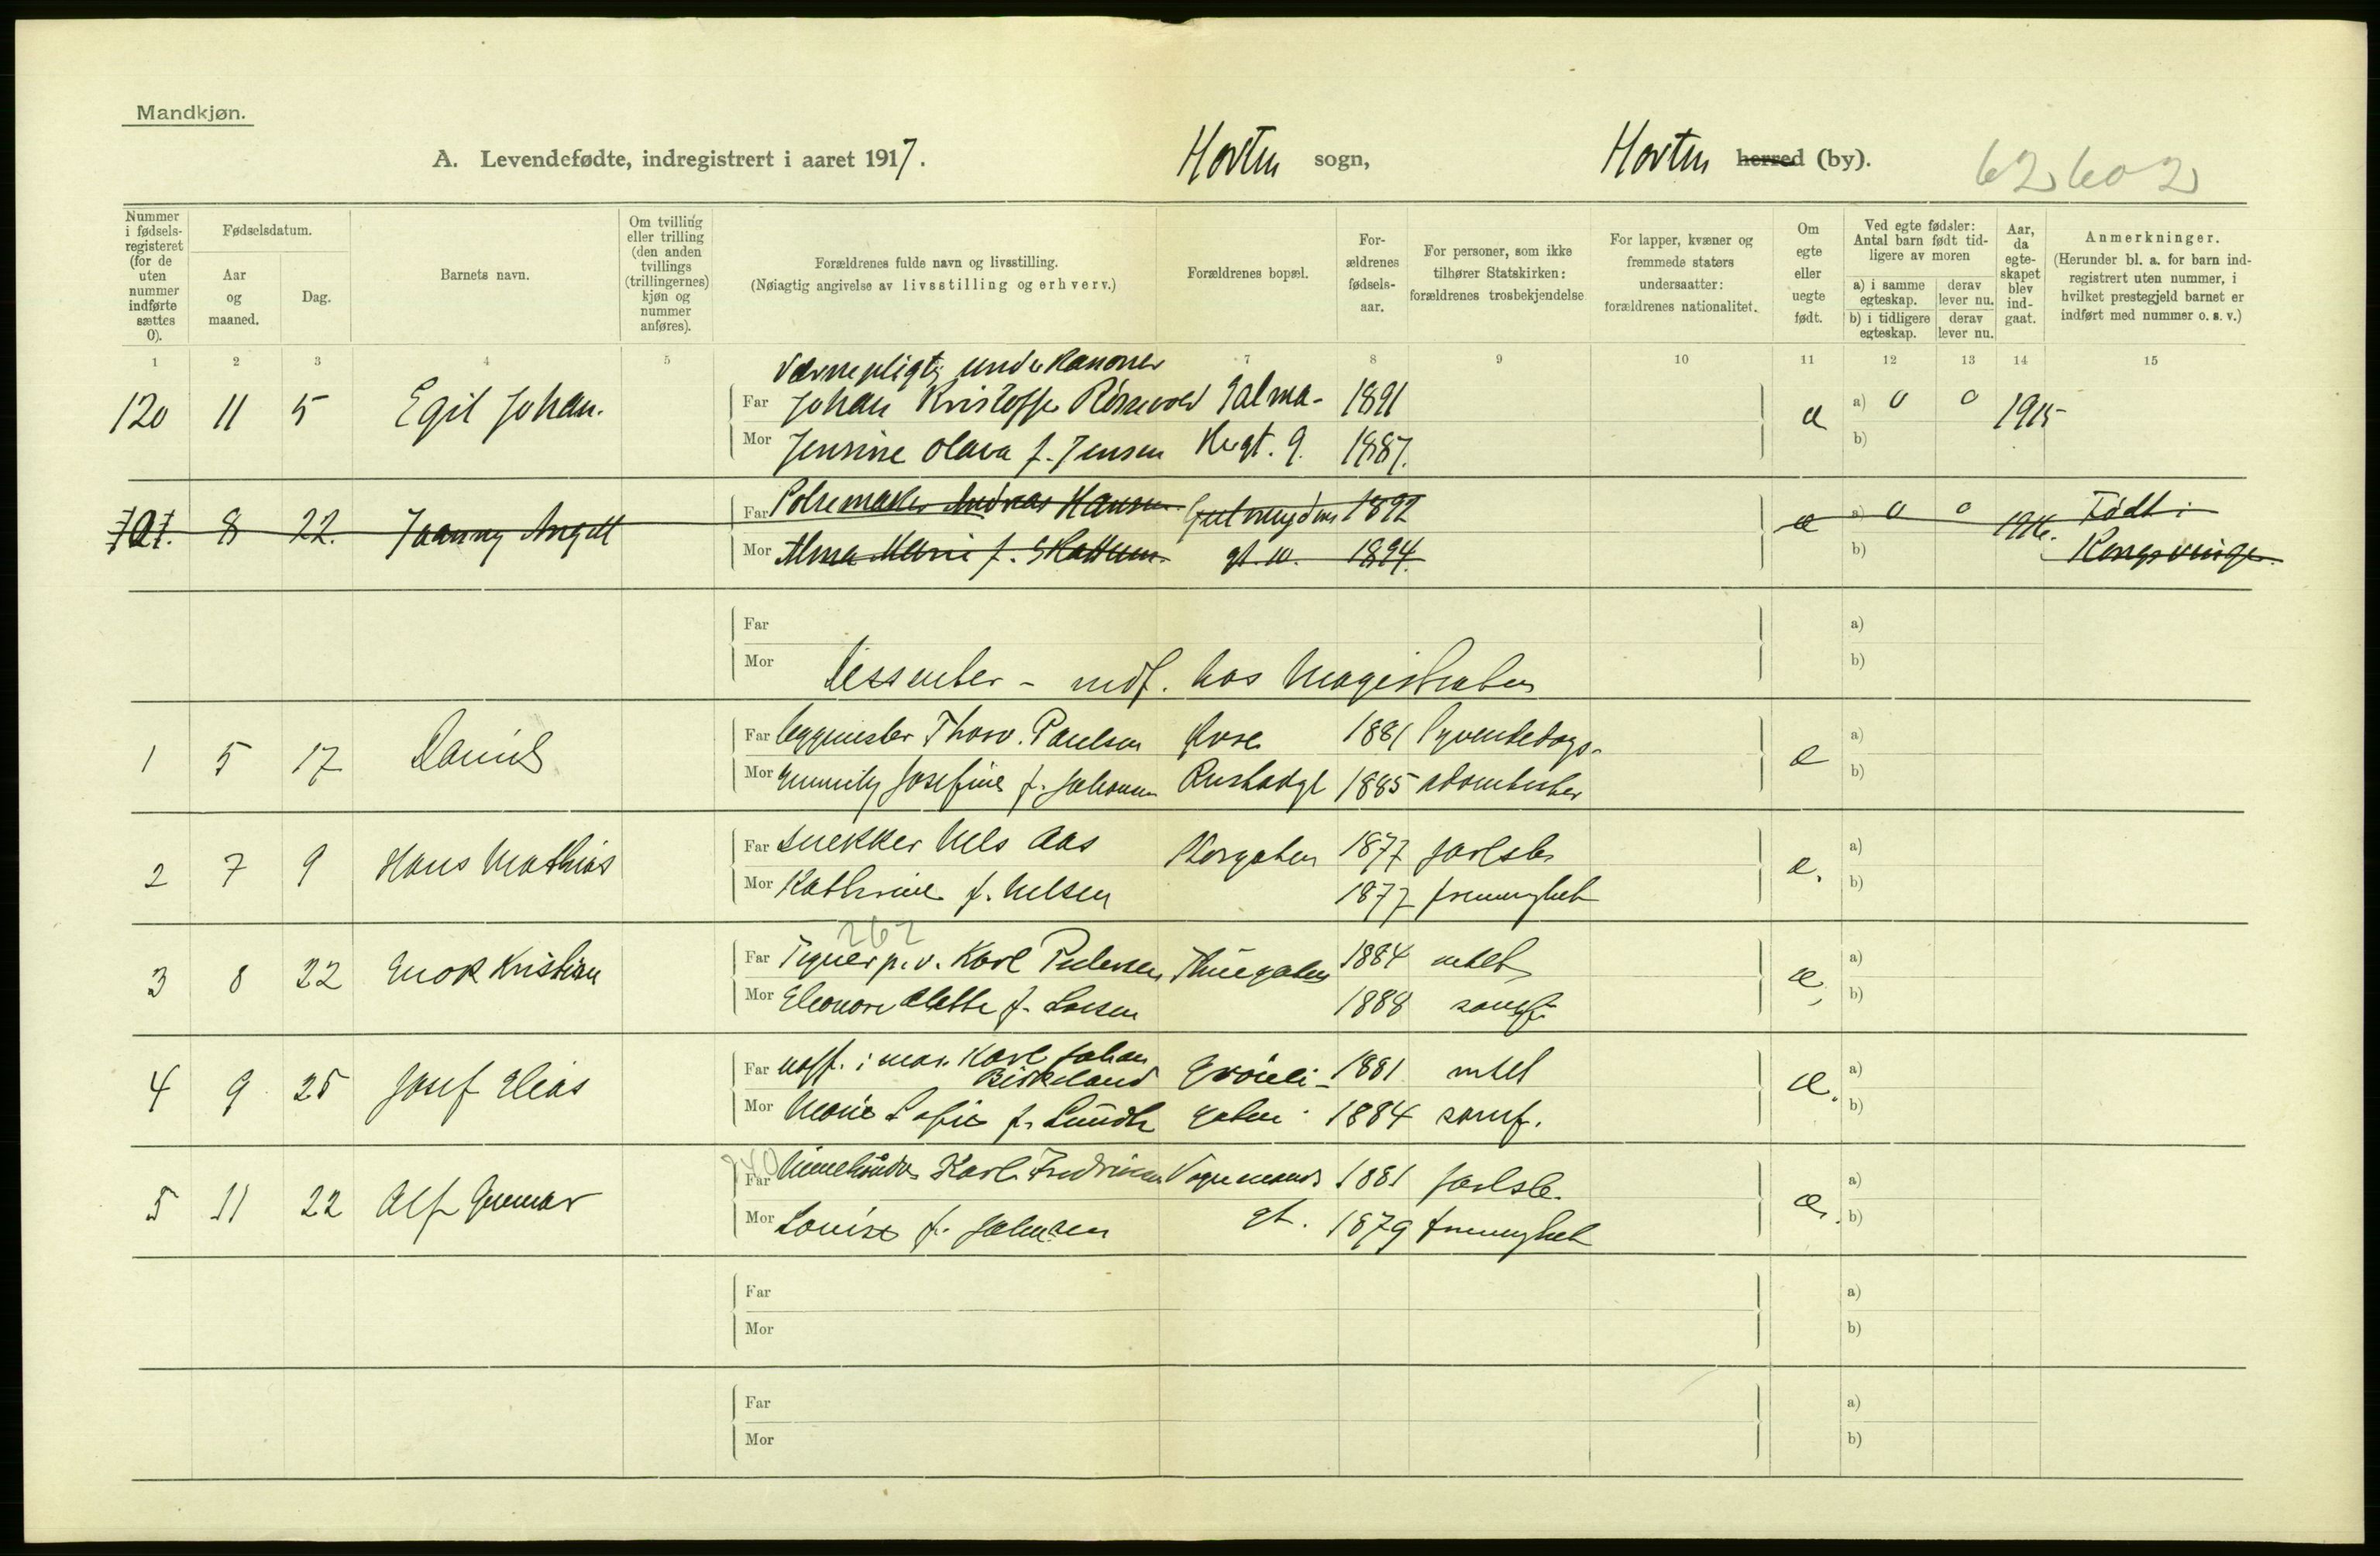 Mandkjøn.
A. Levendefødte, indregistrert i aaret 1917. Horten sogn, Horten herred (by). 62602
Nummer i fødsels-registeret (for de uten nummer indførte sættes 0).
Fødselsdatum.
Aar og maaned.
Dag.
Barnets navn.
Om tvilling eller trilling (den anden tvillings (trillingernes) kjøn og nummer anføres).
Forældrenes fulde navn og livsstilling.
(Nøiagtig angivelse av livsstilling og erhverv.)
Forældrenes bopæl.
For-ældrenes fødsels-aar.
For personer, som ikke tilhører Statskirken: forældrenes trosbekjendelse
For lapper, kvæner og fremmede staters undersaatter: forældrenes nationalitet.
Om egte eller uegte født.
Ved egte fødsler: Antal barn født tid-ligere av moren
a) i samme egteskap.
b) i tidligere egteskap.
derav lever nu.
derav lever nu.
Aar, da egte-skapet blev ind-gaat.
Anmerkninger.
(Herunder bl. a. for barn ind-registrert uten nummer, i hvilket prestegjeld barnet er indført med nummer o. s. v.)
1 2 3 4 5 7 8 9 10 11 12 13 14 15
Værnepligtig underkanoner
120 11 5 Egil Johan. Far Johan Kristoffer 1891 æ a) 0 0 1915
Mor Jensine Olava f. Jensen gt. 9. 1887. b)
121. 8 22. Far Pølsemaker Andreas Hansen 1892 æ a) 0 0 1916. Født i
Mor Alma Marie f. gt. 10. 1894. b) Kongsvinger.
Far a)
Mor Dissenter - hos Magistraten b)
1 5 17 Daniel Far Thorv. Paulsen Øvre 1881 Syvendedags- æ a)
Mor Emmily Josefine f. Johansen Rustadgt 1885 adventister b)
2 7 9 Hans Mathias Far Snekker Nels Aas Storgaten 1877 Jarlsb. æ. a)
Mor Kathrine f. Nelsen 1877 frimenighet b)
262
3 8 22 Enok Kristian Far Karl Pedersen Thuegaten 1884 æ, a)
Mor Eleonore Alette f. Larsen 1888 samf. b)
4 9 25 Josef Elias Far uoff. i mar. Karl Johan Birkeland 1881 æ. a)
Mor Marie Sofie f. Lundh gaten 1884 samf. b)
5 11 22 Alf Gunnar Far Karl Fredriksen Vognmands 1881 Jarlsb. æ. a)
Mor Louise f. Johnsen gt. 1879 frimenighet b)
Far a)
Mor b)
Far a)
Mor b)